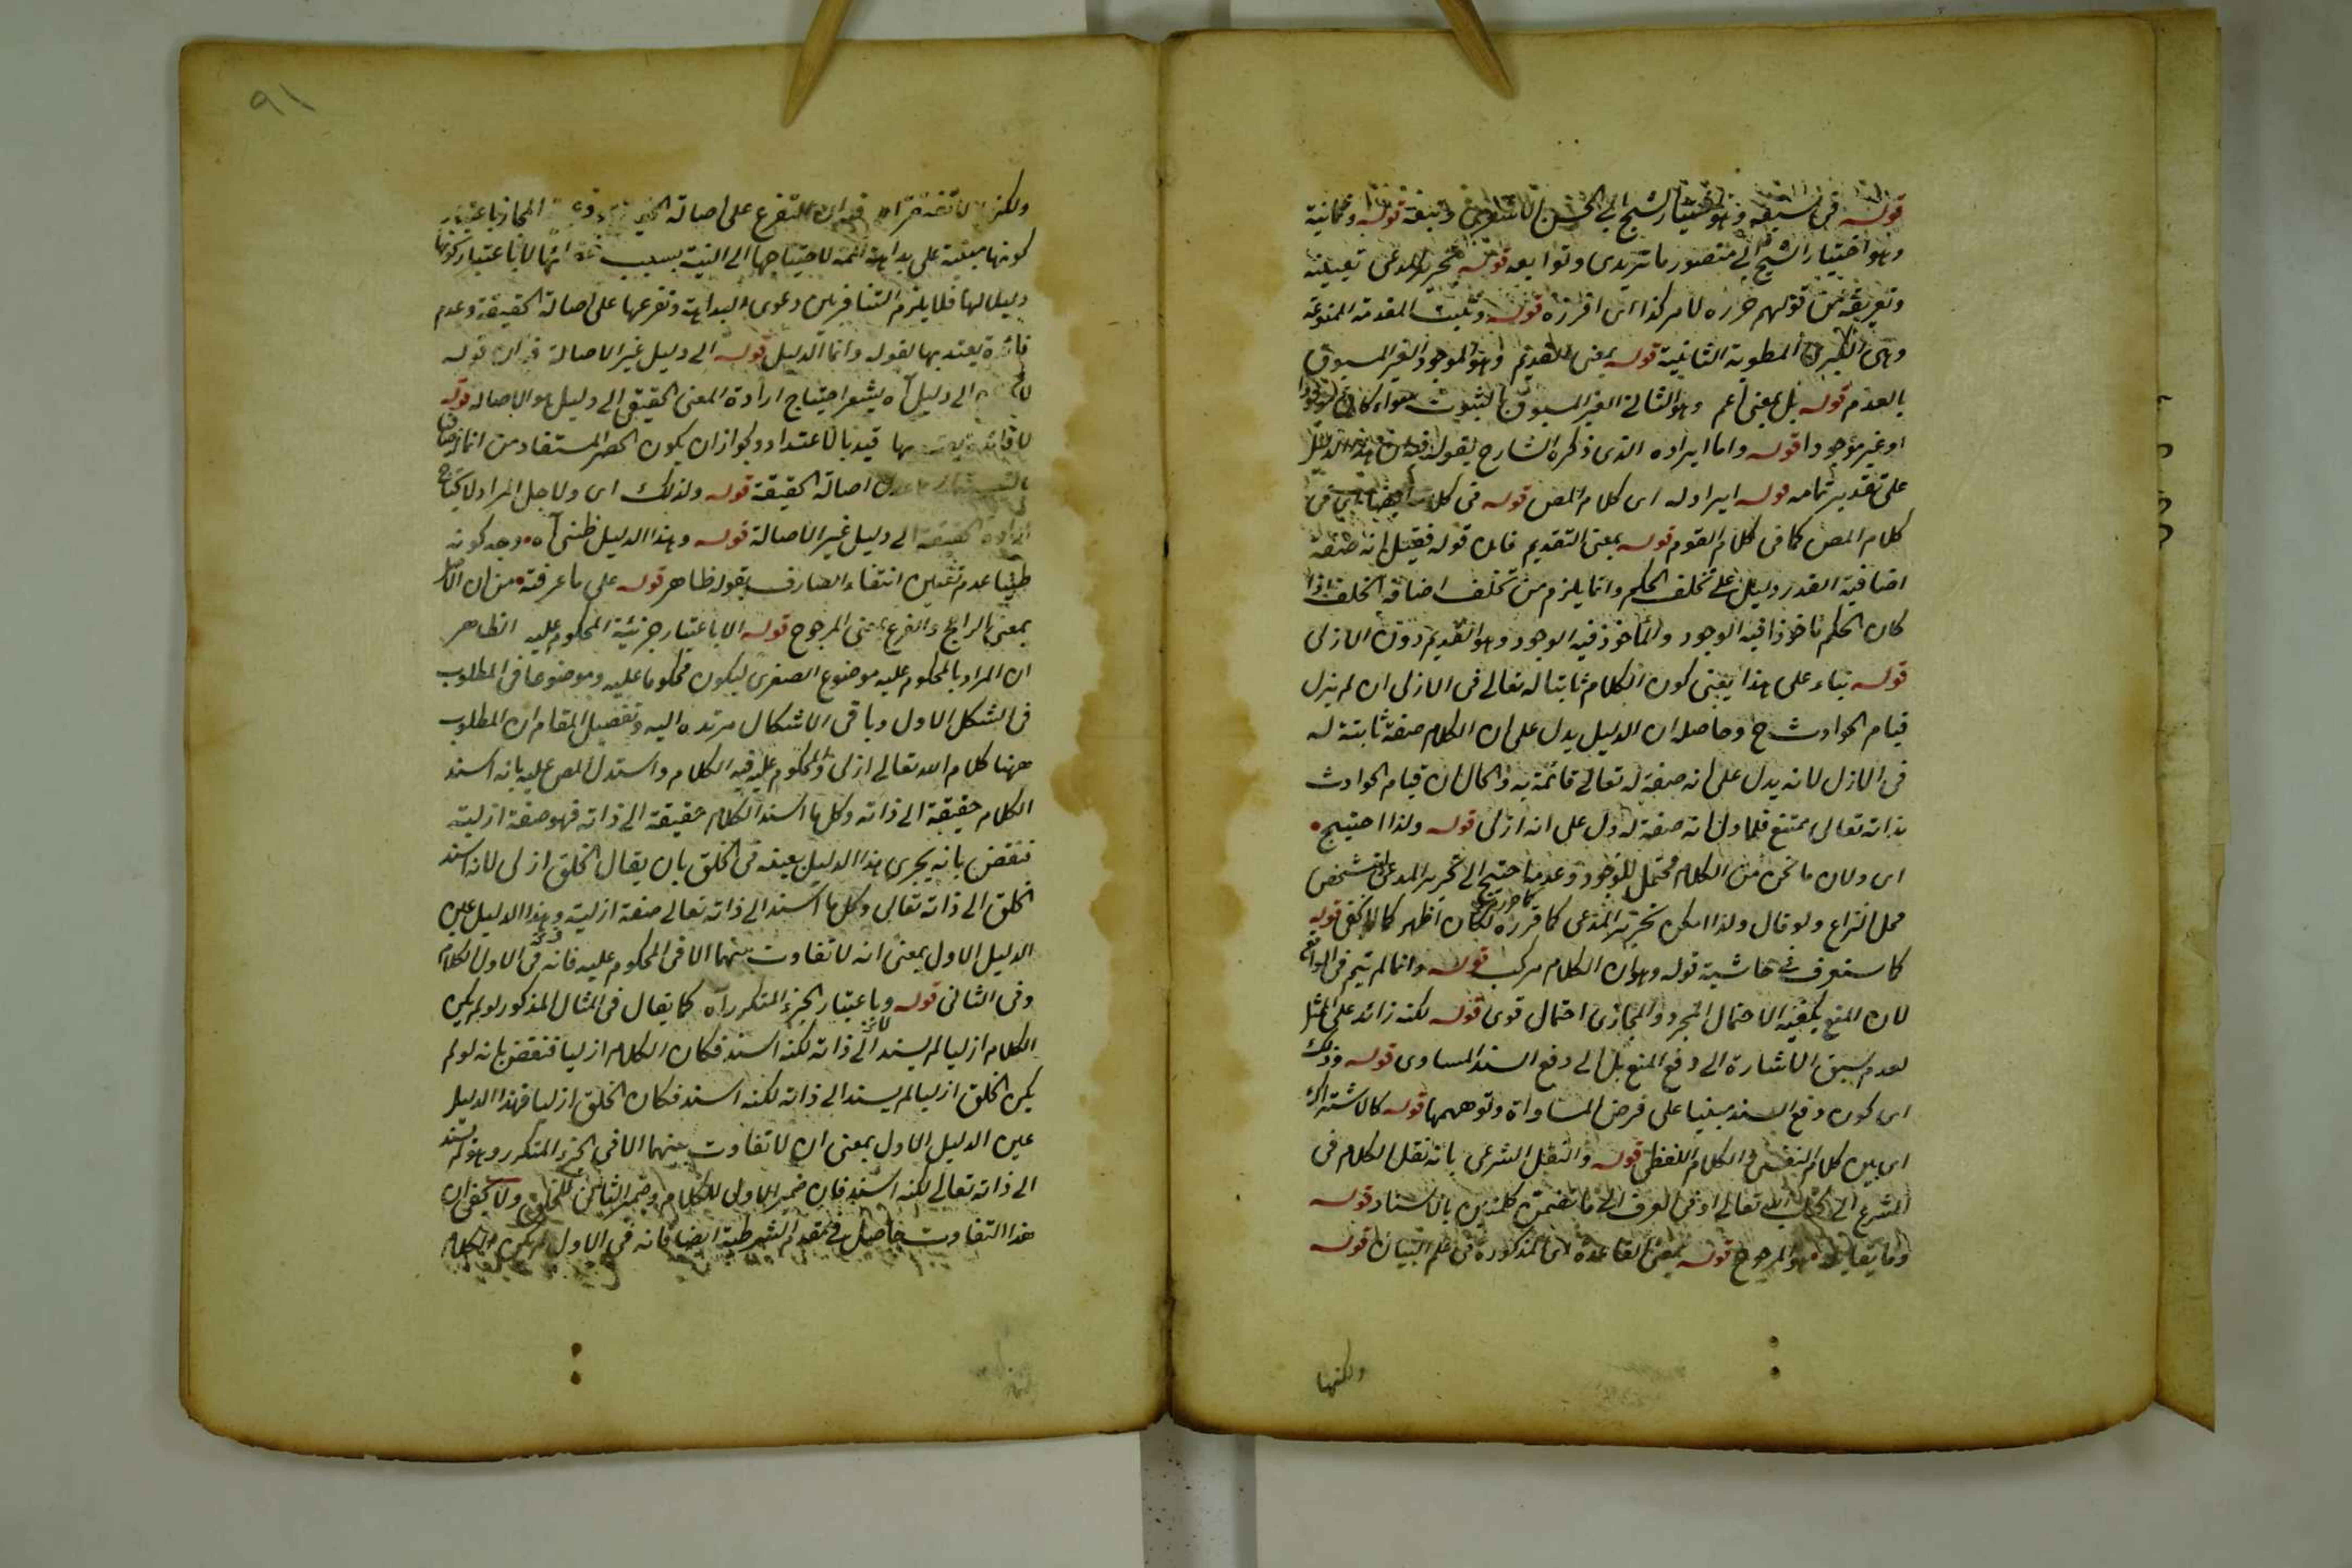 قوله وهو اختيار الشيخ ابي الحسن الاشعري وتبعه قوله وثمانية
وهو اختيار الشيخ ابي منصور ماتريدي وتوابعه قوله تحرير المدعى تعيينه
وتعريفه من قولهم حرره لامر كذا اى افرزه قوله وتثبت المقدمة الممنوعة
وهى الكبرى المطوية الثانية قوله بمعنى القديم وهو الموجود الغير المسبوق
بالعدم قوله بل بمعنى اعم وهو الثالث الغير المسبوق بالثبوت سواء كان موجودا
او غير موجودا قوله واما ايراده الذى ذكره الشارح بقوله هذا الدليل
على تقدير تمامه قوله ايراد له اى كلام المص قوله فى كلامه ايضا اى فى
كلام المص كما فى كلام القوم قوله بمعنى القديم فان قوله فقيل انه صفة
اضافية القدر دليل على تخلف الحكم وانما يلزم من تخلف اضافة الخلف اذا
كان الحكم ماخوذا فيه الوجود والماخوذ فيه الوجود وهو القديم دون الازلى
قوله بناء على هذا يعنى كون الكلام ثابتا له تعالى فى الازلى ان لم يزل
قيام الحوادث ح وحاصله ان الدليل يدل على ان الكلام صفة ثابتة له
فى الازل لانه يدل على انه صفة له تعالى قائمة به والحال ان قيام الحوادث
بذاته تعالى ممتنع فلما دل انه صفة له دل على انه ازلى قوله ولذا احتيج
اى ولان ما نحن من الكلام محتمل للوجود وعدمه احتيج الى تحرير المدعى لتشخص
محل النزاع ولو قال ولذا امكن تحرير المدعى كما قرره لكان اظهر كما لا يخفى قوله
كما حررته
كما ستعرف فى حاشية قوله وهو ان الكلام مركب قوله وانما لم يتم فى الواقع
لان المنع يكفيه الاحتمال المجرد والمجازى احتمال قوى قوله لكنه زائد على المثل
لعدم سبق الاشارة الى دفع المنع بل الى دفع السند المساوى قوله وذلك
اى كون دفع السند مبنيا على فرض المساواة وتوهمها قوله كالاشتراك
اى بين كلام النفسى والكلام اللفظى قوله والنقل الشرعى بانه نقل الكلام فى
الشرع الى كتاب الله تعالى او فى العرف الى ما تضمن كلمتين بالاسناد قوله
وما يقابله هو المرجوح قوله بمعنى القاعدة اى المذكورة فى علم البيان قوله
ولكنها
٩١
ولكنها لا تقتضى التفرع على اصالة المجاز باعتبار
كونها مبنية على بداهة لاحتياجها الى النية بسبب انها لا باعتبار كونها
دليل لها فلا يلزم التنافر بين دعوى البداهة وتفرعها على اصالة الحقيقة وعدم
فائدة يعتد بها لقوله وانما الدليل قوله الى دليل غير الاصالة فان قوله
الى دليل آه يشعر احتياج ارادة المعنى الحقيقى الى دليل هو الاصالة قوله
لا فائدة يعتد بها قيد بالاعتداد لجواز ان يكون الحصر المستفاد من انما
اصالة الحقيقة قوله ولذلك اى ولاجل المراد لا يحتاج
ارادة الحقيقة الى دليل غير الاصالة قوله وهذا الدليل ظنى آه وجه كونه
ظنيا عدم تعين انتفاء الصارف بقوله ظاهر قوله على ما عرفته من ان الاصل
بمعنى الراجح والفرع بمعنى المرجوح قوله الا باعتبار جزئية المحكوم عليه الظاهر
ان المراد بالمحكوم عليه موضوع الصغرى ليكون محكوما عليه وموضوعا فى المطلوب
فى الشكل الاول وباقى الاشكال مرتدة اليه وتفصيل المقام ان المطلوب
ههنا كلام الله تعالى ازلى والمحكوم عليه فيه الكلام واستدل المص عليه بانه اسند
الكلام حقيقة الى ذاته وكل ما اسند الكلام حقيقة الى ذاته فهو صفة ازلية
فنقض بانه يجرى هذا الدليل بعينه فى الخلق بان يقال الخلق ازلى لانه اسند
الخلق الى ذاته تعالى وكل ما اسند الى ذاته تعالى صفة ازلية وهذا الدليل عين
الدليل الاول بمعنى انه لا تفاوت بينهما الا فى المحكوم عليه فانه فى الاول الكلام
وفى الثانى قوله وباعتبار الجزء المتكرر آه كما يقال فى المثال المذكور لو لم يكن
الكلام ازليا لم يسند الى ذاته لكنه اسند فكان الكلام ازليا فنقض بانه لو لم
يكن الخلق ازليا لم يسند الى ذاته لكنه اسند فكان الخلق ازليا فهذا الدليل
عين الدليل الاول بمعنى ان لا تفاوت بينهما الا فى الجزء المتكرر وهو لم يسند
الى ذاته تعالى لكنه اسند فان ضمير الاولى للكلام وضمير الثانى للخلق ولا يخفى ان
هذا التفاوت حاصل فى مقدم الشرطية ايضا فانه فى الاول لم يكن الكلام